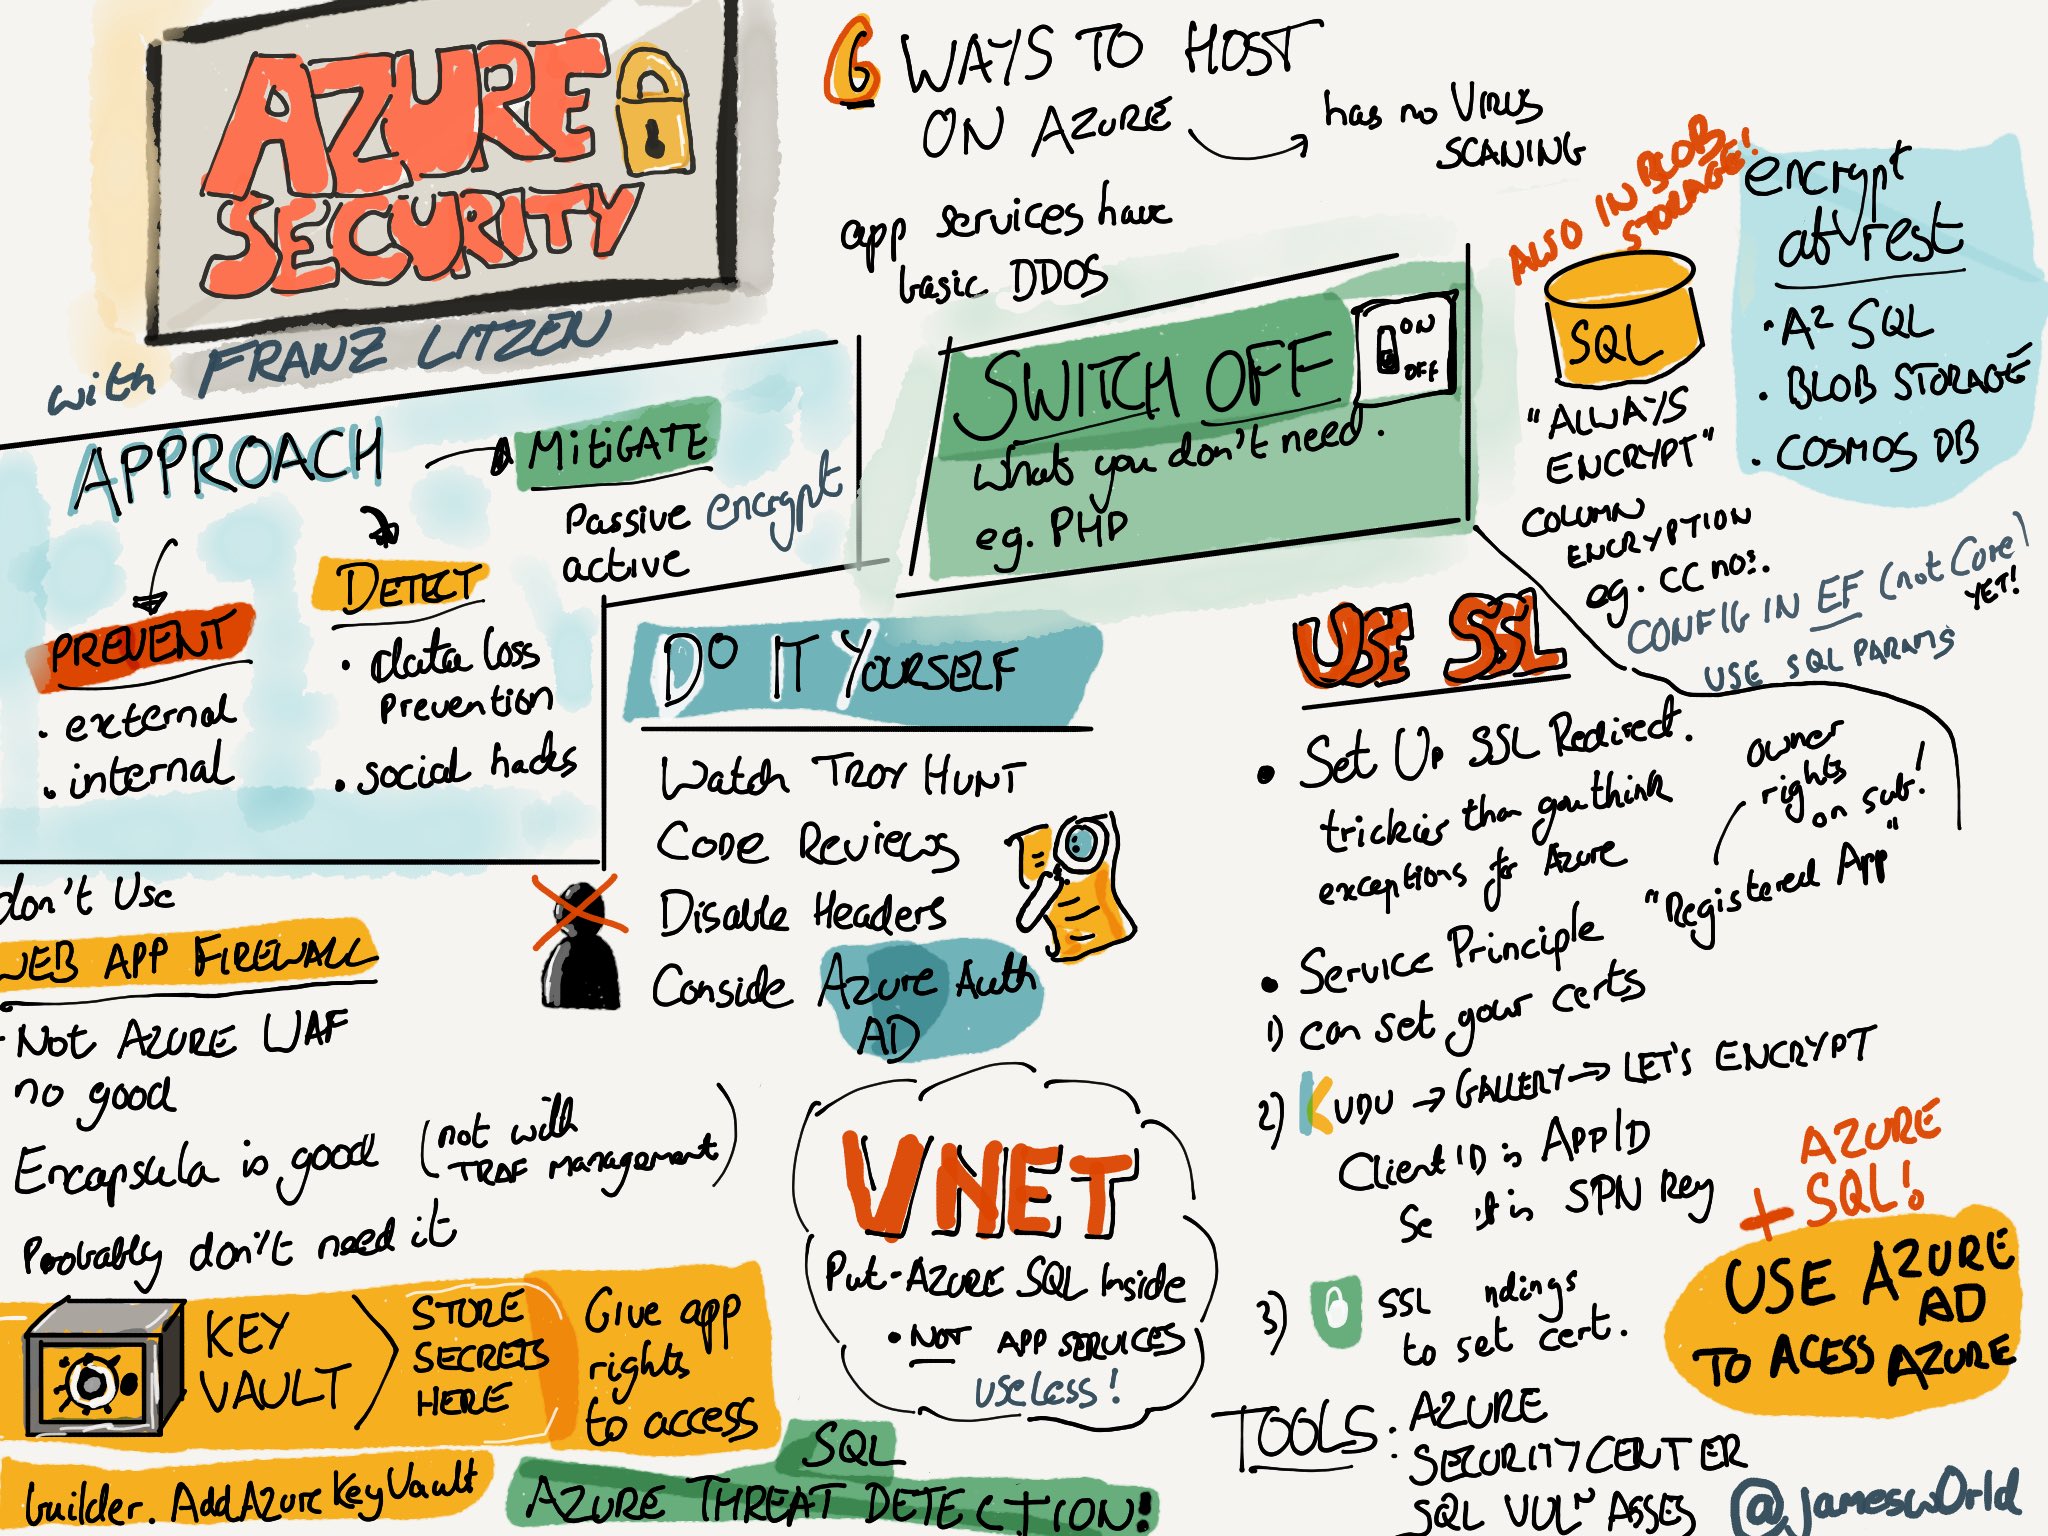 AZURE
SECURITY
with FRANZ LITZEN
6 WAYS TO HOST
ON AZURE
has no VIRUS
SCANING
app services have
basic DDOS
APPROACH
MITIGATE
Passive encrypt
active
PREVENT
• external
• internal
DETECT
• data loss
prevention
• social hacks
SWITCH OFF
ON
OFF
whats you don't need.
eg. PHP
ALSO IN BLOB
STORAGE!
SQL
"ALWAYS
ENCRYPT"
COLUMN
ENCRYPTION
eg. CC nos.
CONFIG IN EF (not Core)
YET!
USE SQL PARAMS
encrypt
at rest
• AZ SQL
• BLOB STORAGE
• COSMOS DB
DO IT YOURSELF
Watch TROY HUNT
CODE REVIEWS
Disable Headers
Conside Azure Auth
AD
USE SSL
• Set Up SSL Redirect.
trickier than you think
exceptions for Azure
• Service Principle
1) can set your certs
owner
rights
on sub!
"Registered App"
2) KUDU → GALLERY → LET'S ENCRYPT
Client ID is APP ID
Se it is SPN Key
3) SSL ndings
to set cert.
don't Use
WEB APP FIREWALL
- Not AZURE WAF
no good
Encapsula is good
(not with
TRAF management)
Probably don't need it
VNET
Put AZURE SQL Inside
• NOT APP SERVICES
useless!
AZURE
+ SQL!
USE AZURE
AD
TO ACESS AZURE
KEY
VAULT
STORE
SECRETS
HERE
Give app
rights
to access
builder. AddAzureKeyVault
SQL
AZURE THREAT DETECTION!
TOOLS: AZURE
SECURITY CENTER
SQL VULN ASSES
@jamesw0rld